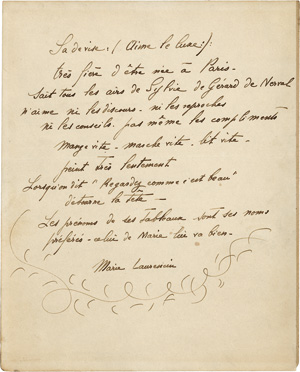 Sa devise : (Aime le luxe) :
très fière d'être née à Paris -
Sait tous les airs de Sylvie de Gérard de Nerval
n'aime ni les discours - ni les reproches
ni les conseils. pas même les compliments
Mange vite - marche vite. lit vite -
peint très lentement
Lorsqu'on dit "Regardez comme c'est beau"
détourne la tête -
Les prénoms de ses tableaux sont ses noms
préférés - celui de Marie lui va bien -
Marie Laurencin